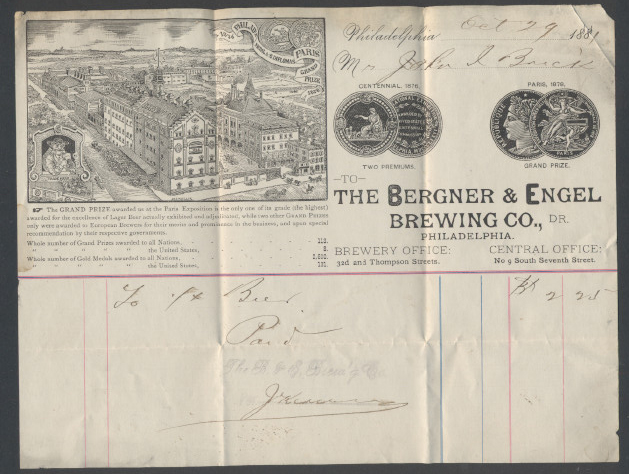 PHILAD'A
1874
MEDAL & DIPLOMA
PARIS
GRAND
PRIZE
1878
Philadelphia Oct 29 1881
Mr
CENTENNIAL, 1876.
PARIS, 1878.
TWO PREMIUMS.
GRAND PRIZE.
—TO—
THE BERGNER & ENGEL
BREWING CO., DR.
PHILADELPHIA.
BREWERY OFFICE:
32d and Thompson Streets.
CENTRAL OFFICE:
No 9 South Seventh Street.
☞ The GRAND PRIZE awarded us at the Paris Exposition is the only one of its grade (the highest)
awarded for the excellence of Lager Beer actually exhibited and adjudicated, while two other GRAND PRIZES
only were awarded to European Brewers for their merits and prominence in the business, and upon special
recommendation by their respective governments.
Whole number of Grand Prizes awarded to all Nations,
" " " " " the United States,
Whole number of Gold Medals awarded to all Nations,
" " " " " the United States,
To Beer 2 25
Paid